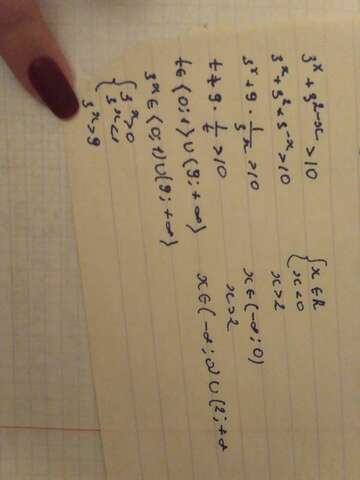 3^x + 3^{2-x} > 10
3^x + 3^2 * 3^{-x} > 10
3^x + 9 · 1/3^x > 10
t + 9 · 1/t > 10
t ∈ (0; 1) ∪ (9; +∞)
3^x ∈ (0; 1) ∪ (9; +∞)
{ 3^x > 0
3^x < 1
3^x > 9
{ x ∈ R
x < 0
x > 2
x ∈ (-∞; 0)
x > 2
x ∈ (-∞; 0) ∪ (2; +∞